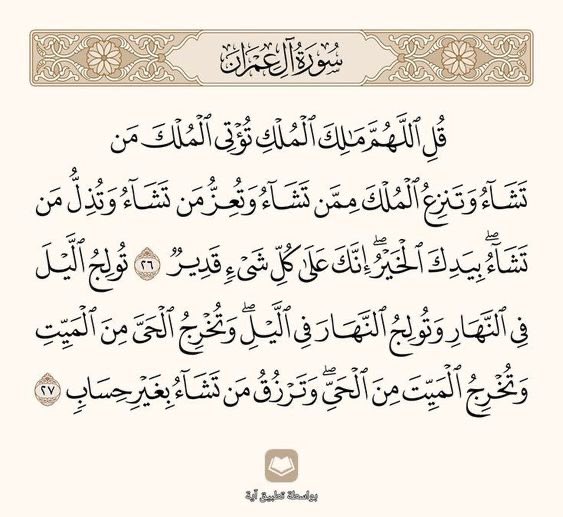 سُورَةُ آلِ عِمْرَانَ
قُلِ ٱللَّهُمَّ مَٰلِكَ ٱلْمُلْكِ تُؤْتِى ٱلْمُلْكَ مَن
تَشَآءُ وَتَنزِعُ ٱلْمُلْكَ مِمَّن تَشَآءُ وَتُعِزُّ مَن تَشَآءُ وَتُذِلُّ مَن
تَشَآءُۖ بِيَدِكَ ٱلْخَيْرُۖ إِنَّكَ عَلَىٰ كُلِّ شَىْءٍ قَدِيرٌ ٢٦ تُولِجُ ٱلَّيْلَ
فِى ٱلنَّهَارِ وَتُولِجُ ٱلنَّهَارَ فِى ٱلَّيْلِۖ وَتُخْرِجُ ٱلْحَىَّ مِنَ ٱلْمَيِّتِ
وَتُخْرِجُ ٱلْمَيِّتَ مِنَ ٱلْحَىِّۖ وَتَرْزُقُ مَن تَشَآءُ بِغَيْرِ حِسَابٍ ٢٧
بواسطة تطبيق آية